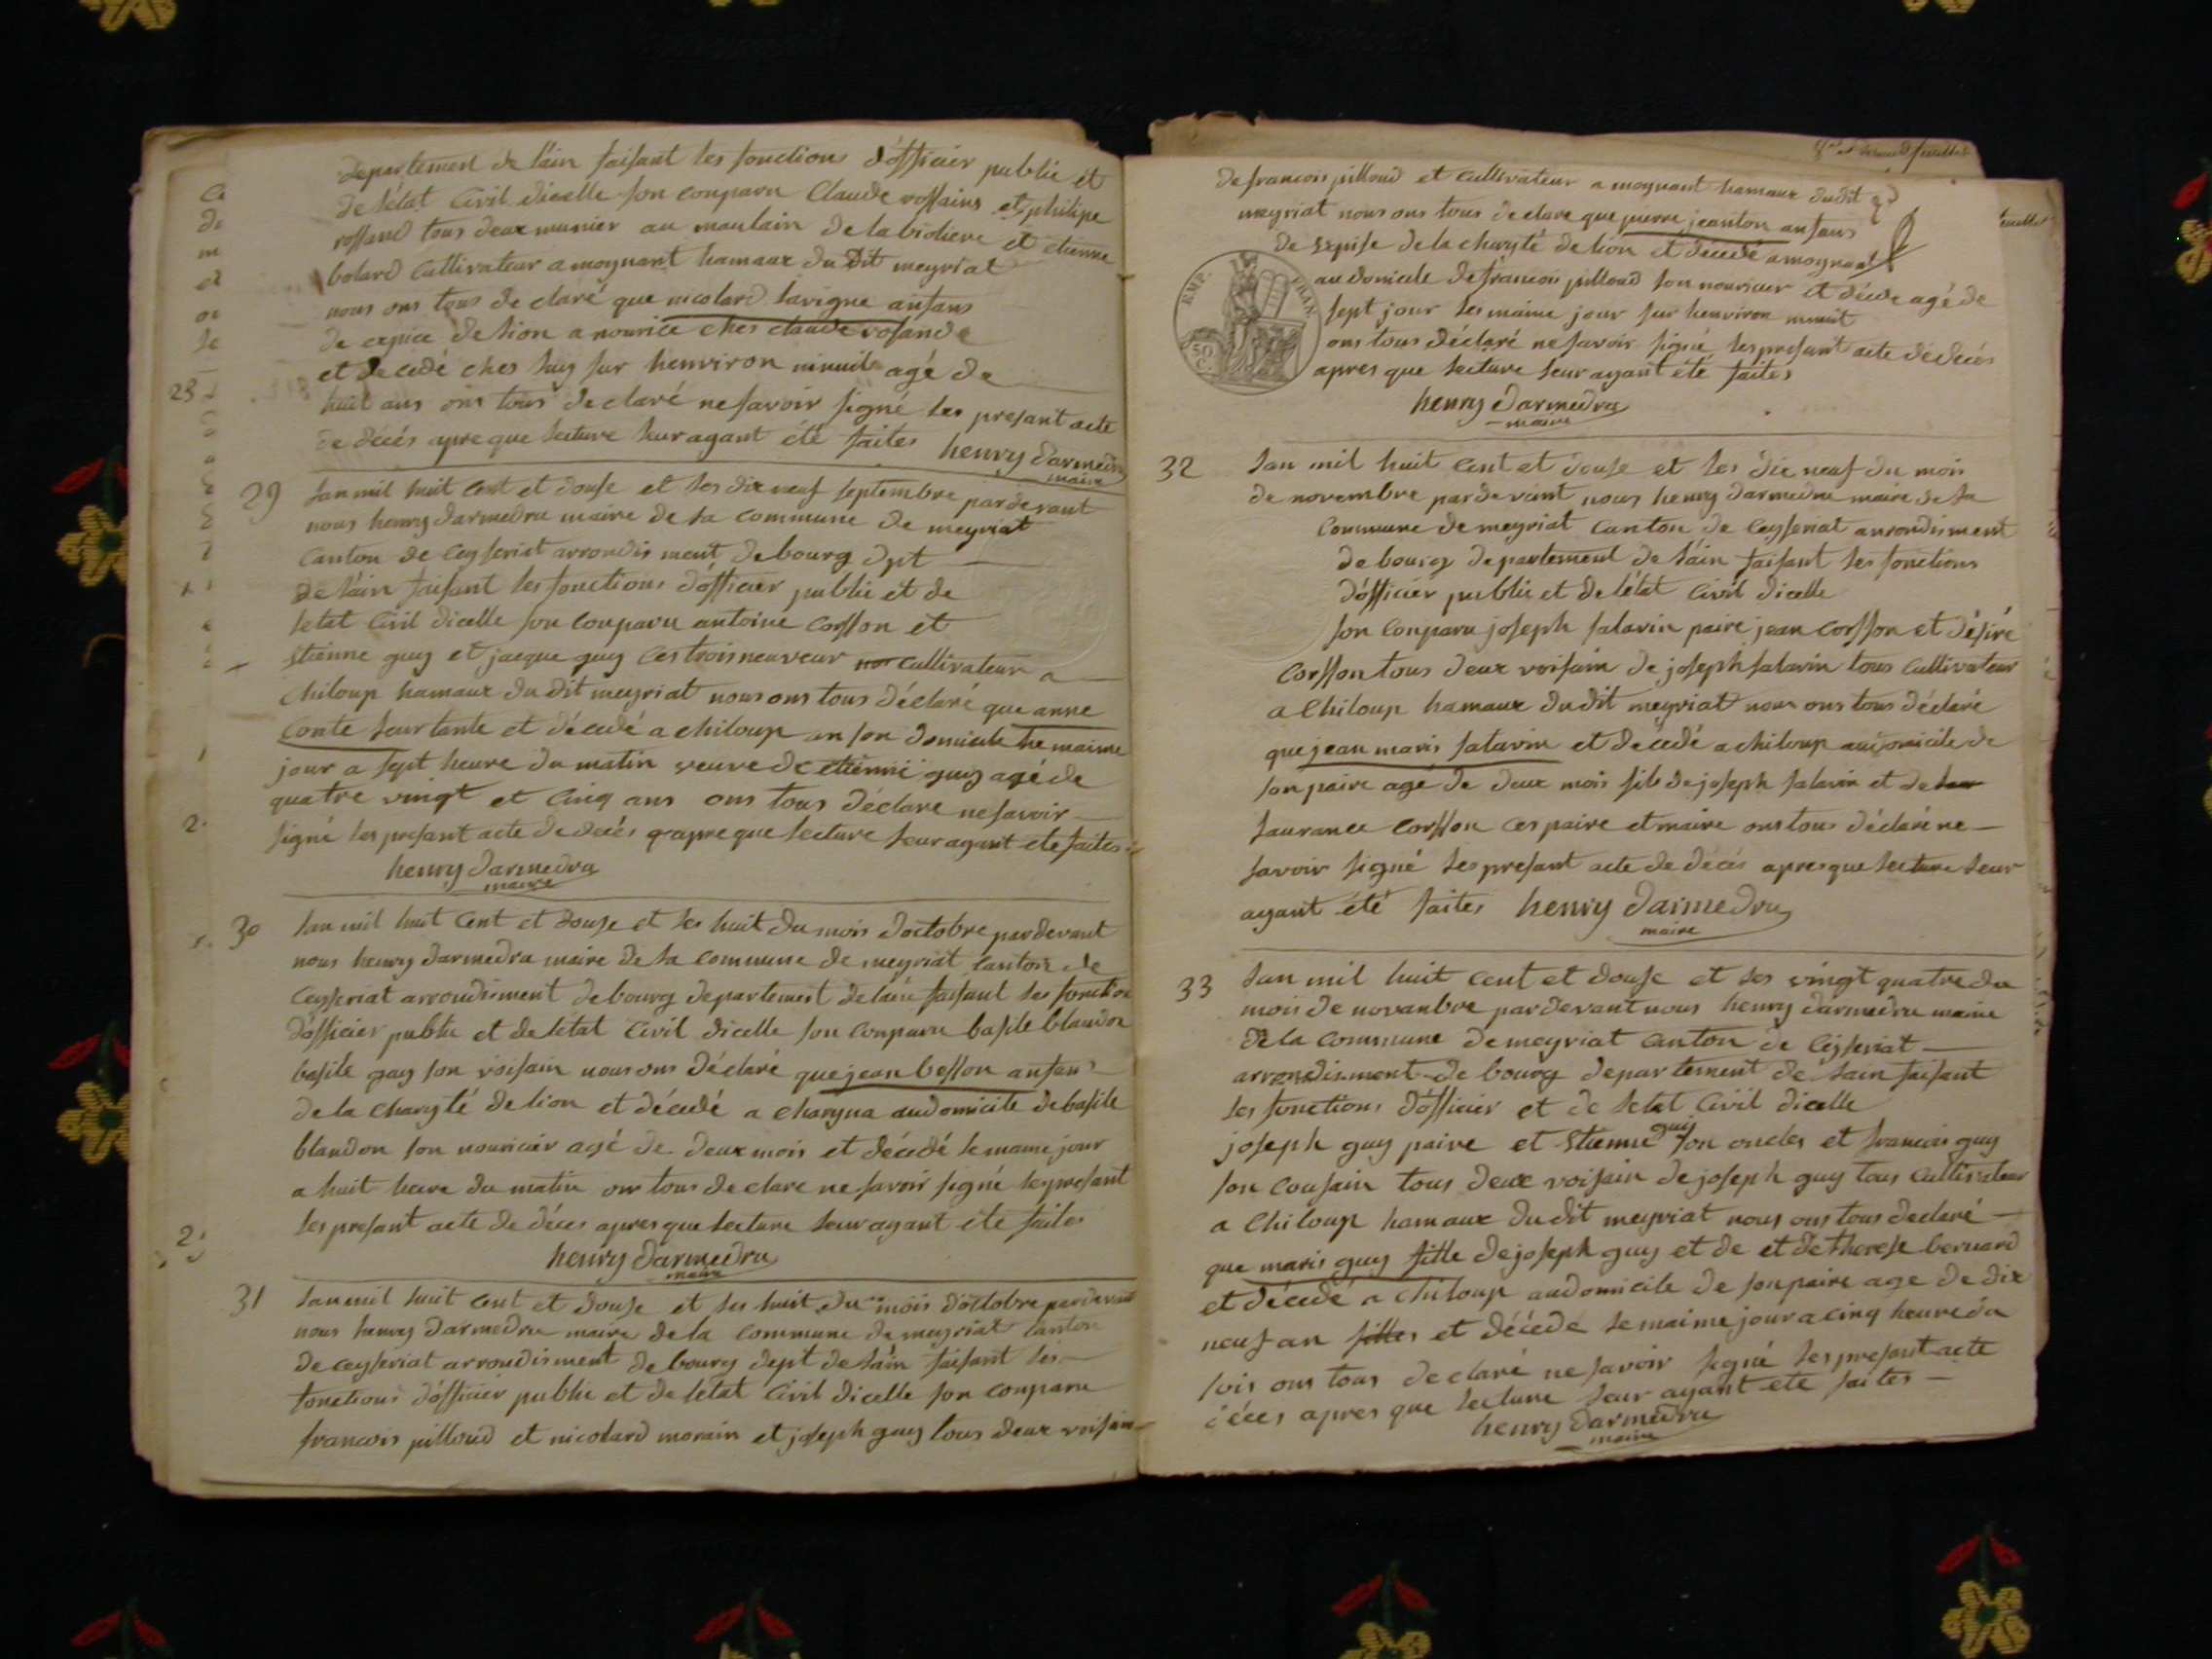 departement de lain faisant les fonctions d'officier public et
de létat Civil dicelle son conparu Claude rossains et philipe
rossand tous deux munier au moulain de la violiere et etienne
bolard Cultivateur a moynant hamaux du Dit meyriat
nous ons tous de claré que nicolard lavigne anfans
de espice de lion a nourice ches claude rosande
et decedé ches luy sur henviron minuit agé de
huit ans ons tous de claré ne savoir signé les presant acte
de décés apre que lecture leur ayant été faites henry darmedru
maire
29 lan mil huit Cent et douse et les dix neuf septembre par devant
nous henry darmedru maire de la commune de meyriat
Canton de Ceyseriat arrondisment de bourg dpt
de lain faisant les fonctions d'officier public et de
letat Civil dicelle son conparu antoine Corsson et
Etienne guy et jacque guy Ces trois neuveur cultivateur a
Chiloup hamaux du dit meyriat nous ons tous déclaré que anne
Conte leur tante et décedé a chiloup an son domicile le maime
jour a sept heure du matin veuve de etienne guy agé de
quatre vingt et Cinq ans ons tous déclare ne savoir
signé les presant acte de decés apre que lecture leur ayant ete faites
henry darmedru
maire
30 lan mil huit Cent et douse et les huit du mois doctobre par devant
nous henry darmedru maire de la commune de meyriat Canton de
Ceyseriat arrondisment de bourg departement de lain faisant les fonction
d'officier public et de létat Civil dicelle son conparu basile blandon
basile guy son voisain nous ons déclaré que jean besson anfans
de la charyté de lion et décedé a charyna au domicile de basile
blandon son nouricier agé de deux mois et décedé le maime jour
a huit heure du matin ons tous de clare ne savoir signé les presant
les presant acte de déces apres que lecture leur ayant ete faites
henry darmedru
maire
31 lan mil huit Cent et douse et les huit du mois doctobre par devant
nous henry darmedru maire de la commune de meyriat Canton
de ceyseriat arrondisment de bourg dept de lain faisant les
fonctions d'officier public et de letat Civil dicelle son conparu
francois pilloud et nicolard morain et joseph guy tous deux voisain
de francois pilloud et Cultivateur a moynant hamaux du dit
meyriat nous ons tous de clare que pierre jeanton anfans
de la charyté de lion et décedé a moynant
au domicile de francois pilloud son nouricier et décede agé de
sept jour les maime jour sur henviron minuit
ons tous déclaré ne savoir signé les presant acte de décés
apres que lecture leur ayant été faites
henry darmedru
maire
EMP. FRAN.
50 C.
32 lan mil huit Cent et douse et les dix neuf du mois
de novembre par de vant nous henry darmedru maire de la
Commune de meyriat Canton de Ceyseriat arrondisment
de bourg departement de l'ain faisant les fonctions
d'officier public et de létat Civil dicelle
son Conparu joseph salavin paire jean Corsson et désiré
Corsson tous deux voisain de joseph salavin tous Cultivateur
a Chiloup hamaux du dit meyriat nous ons tous déclaré
que jean maris salavin et décedé a chiloup au domicile de
son paire agé de deux mois fils de joseph salavin et de
laurance Corsson Ces paire et maire ons tous déclaré ne
savoir signé les presant acte de décés apres que lecture leur
ayant été faites henry darmedru
maire
33 lan mil huit cent et douse et les vingt quatre du
mois de novanbre par devant nous henry darmedru maire
de la Commune de meyriat Canton de Ceyseriat
arrondisment de bourg departement de lain faisant
les fonctions d'officier et de letat Civil dicelle
joseph guy paire et Etienne guy son oncles et francois guy
son Cousain tous deux voisain de joseph guy tous Cultivateur
a Chiloup hamaux du dit meyriat nous ons tous declaré
que maris guy fille de joseph guy et de et de therese bernard
et décedé a chiloup au domicile de son paire age de dix
neuf an filles et décéde le maime jour a cinq heure du
sois ons tous de claré ne savoir signé les presant acte
déces apres que lecture leur ayant ete faites
henry darmedru
maire